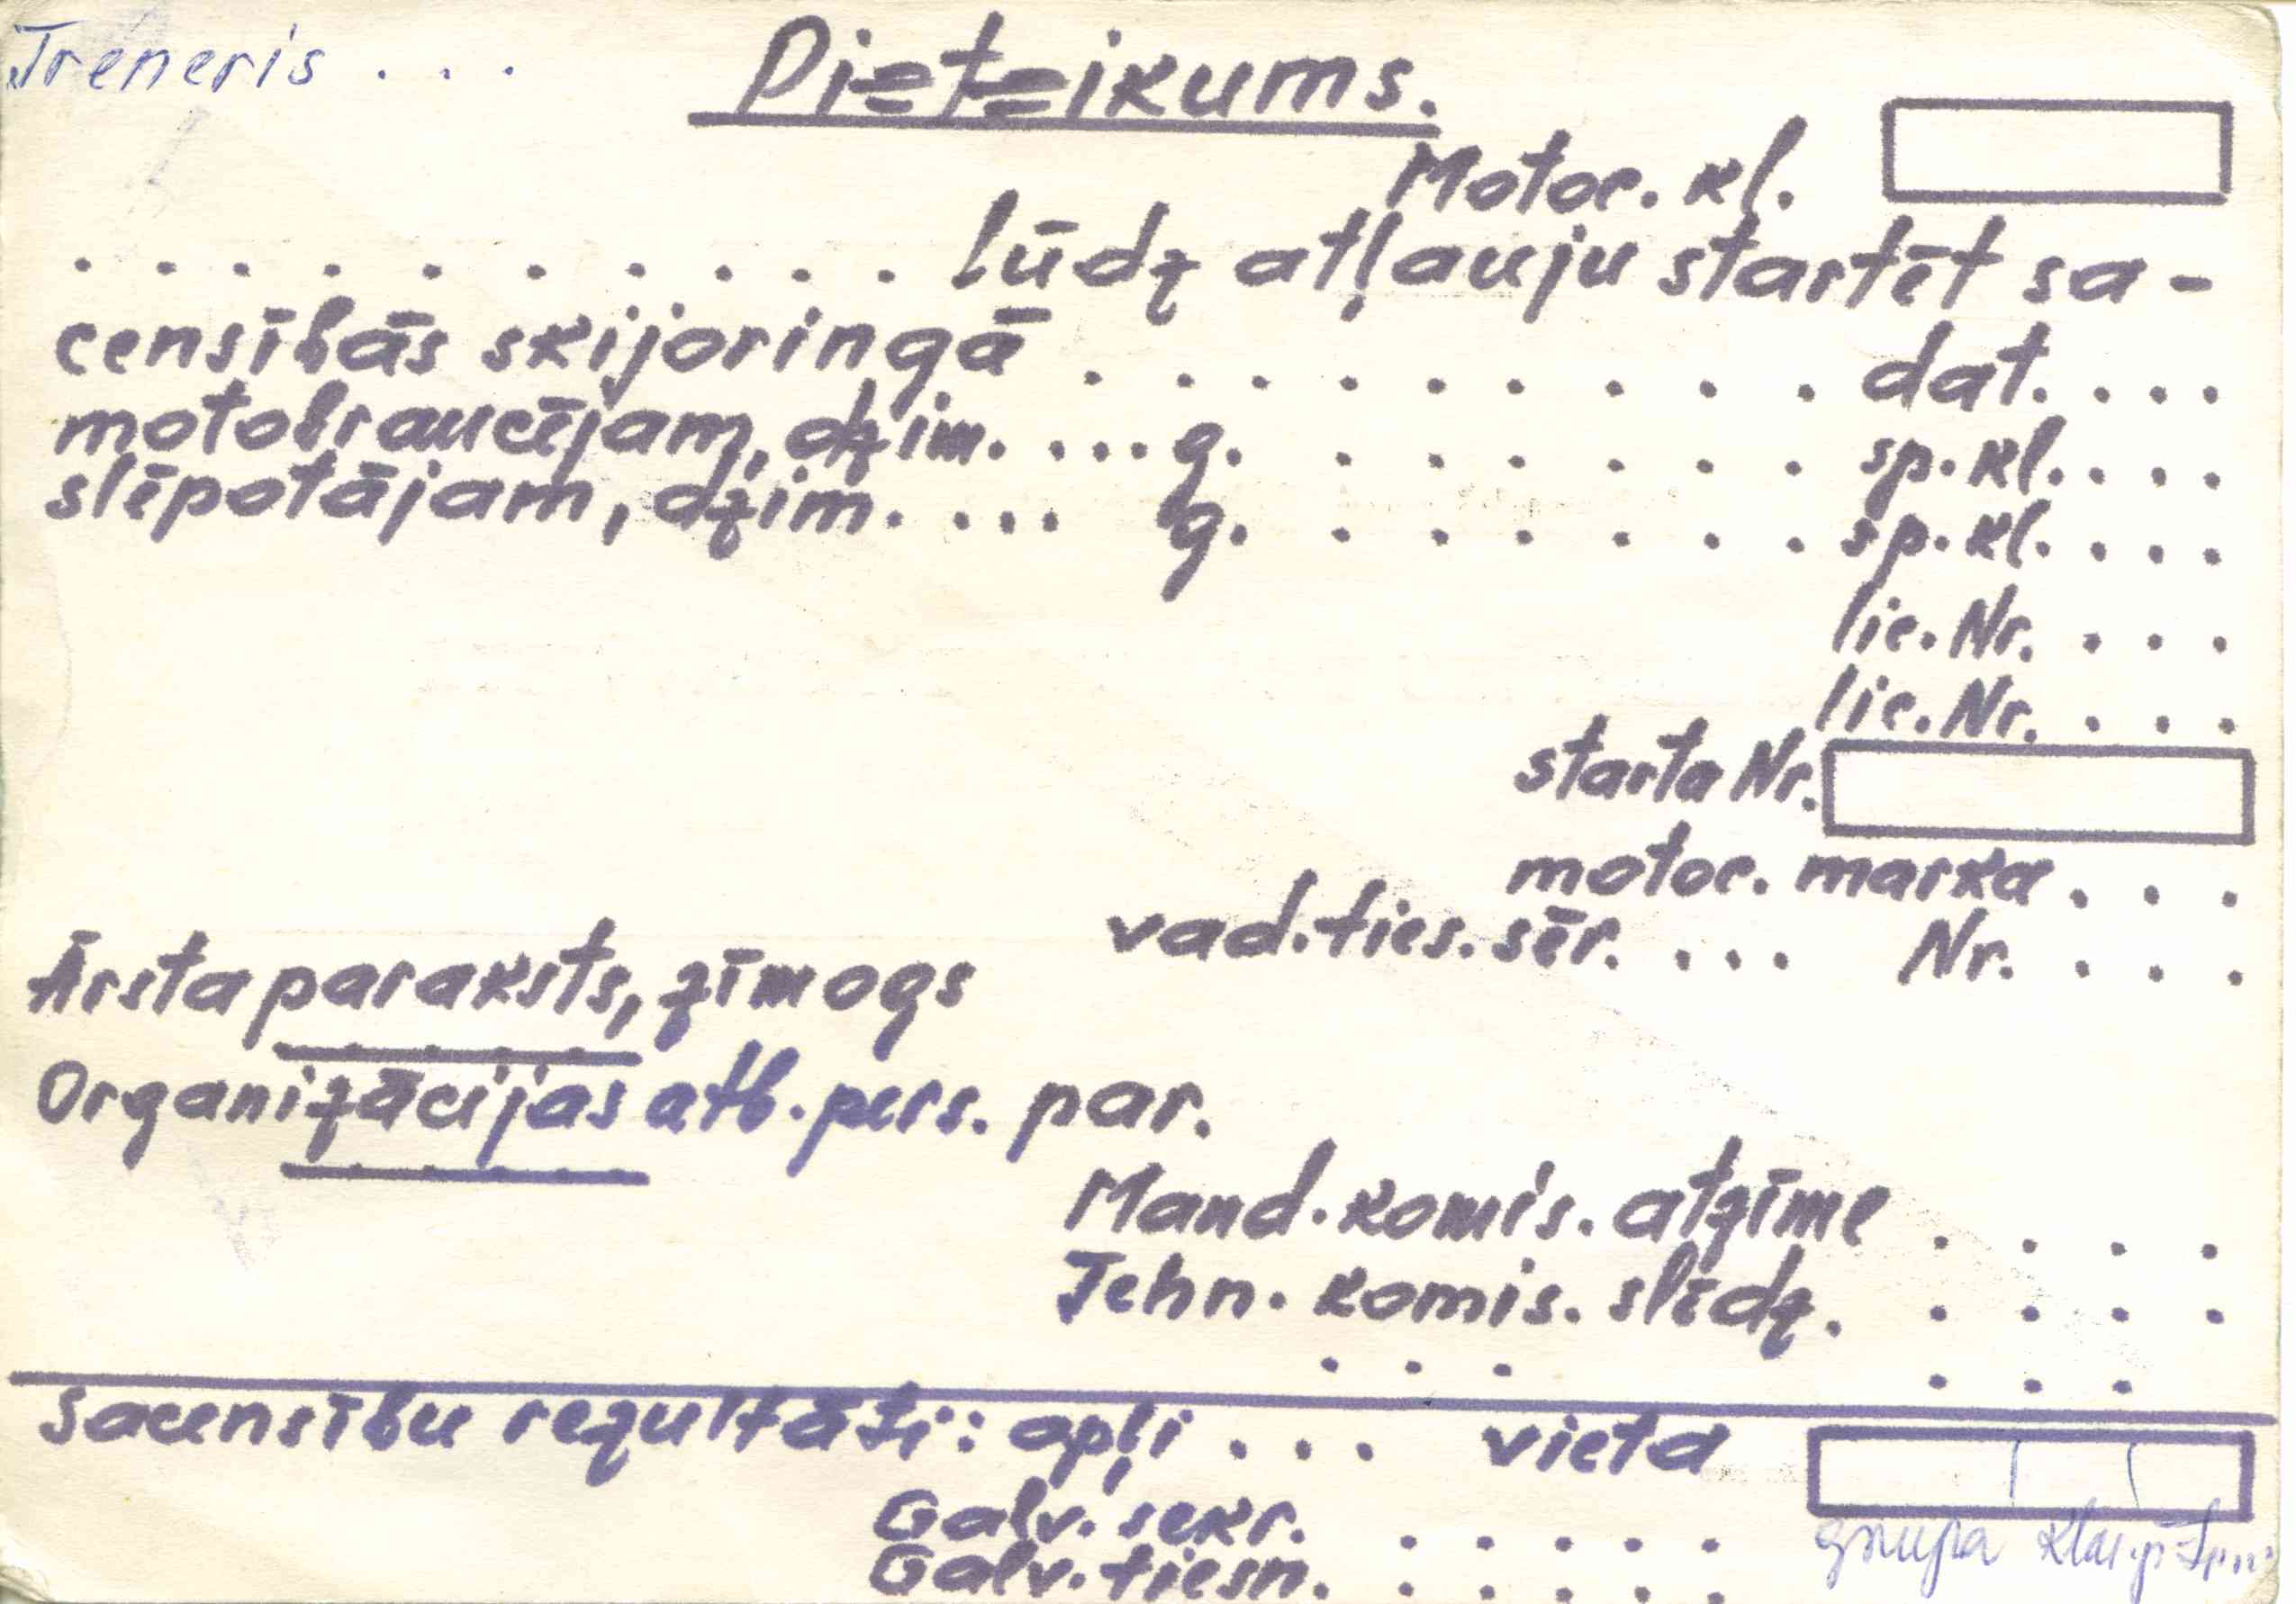 Treneris . . .
Pieteikums.
Motoc. kl.
. . . . . . . . . . . lūdz atļauju startēt sa-
censībās skijoringā . . . . . . . . . dat. . . .
motobraucējam, dzim. . . . g. . . . . . . sp. kl. . . .
slēpotājam, dzim. . . . g. . . . . . . sp. kl. . . .
lic. Nr. . . .
lic. Nr. . . .
starta Nr.
motoc. marka . . .
vad. ties. sēr. . . . Nr. . . .
Ārsta paraksts, zīmogs
Organizācijas atb. pers. par.
Mand. komis. atzīme . . . .
Tehn. komis. slēdz. . . . .
. . . . . .
Sacensību rezultāti: apļi . . . vieta
Galv. sekr. . . . . .
grupa
Galv. tiesn. . . . . .